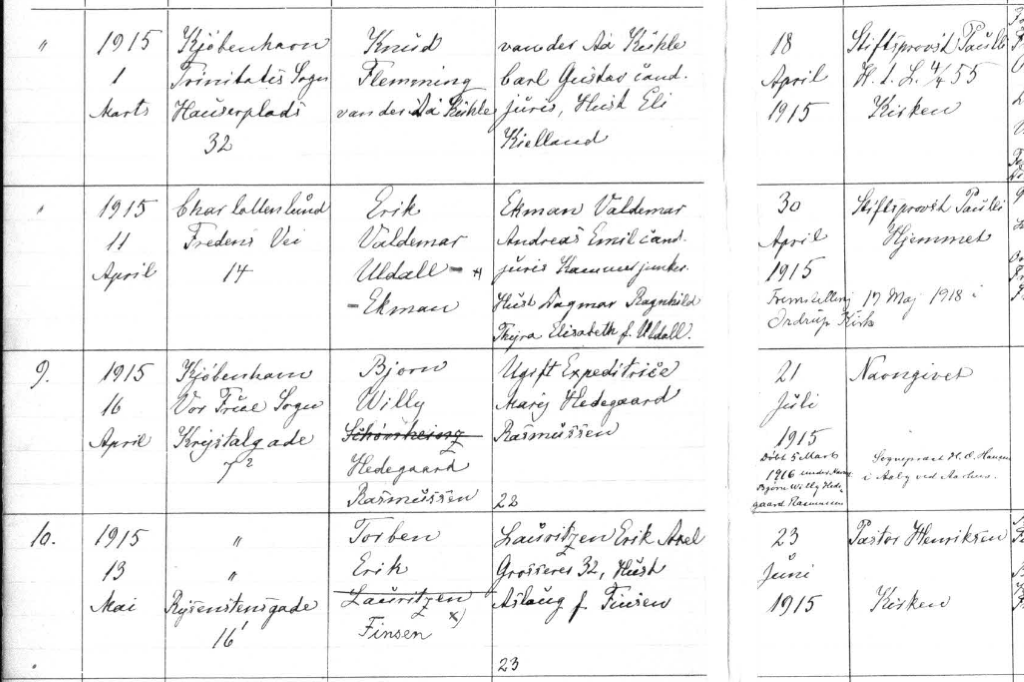 "
1915
1
Marts
Kjöbenhavn
Trinitatis Sogn
Hauserplads
32
Knud
Flemming
van der Aa Kühle
van der Aa Kühle
Carl Gustav cand.
juris, Hust Eli
Kielland
18
April
1915
Stiftsprovst Paulli
H. t. L. 4/4 55
Kirken
"
1915
11
April
Charlottenlund
Fredens Vei
14
Erik
Valdemar
Uldall-
-Ekman
Ekman Valdemar
Andreas Emil cand.
juris Kammerjunker.
Hust Dagmar Ragnhild
Thyra Elisabeth f. Uldall.
30
April
1915
Stiftsprovst Paulli
Hjemmet
Fremstilling 17 Maj 1918 i
Ordrup Kirke
9.
1915
16
April
Kjöbenhavn
Vor Frue Sogn
Krystalgade
7 2
Bjorn
Willy
Schönheing
Hedegaard
Rasmussen
Ugift Expeditrice
Mary Hedegaard
Rasmussen
22
21
Juli
1915
Döbt 5 Marts
1916 under Navn
Bjørn Willy Hede-
gaard Rasmussen
Navngivet
Sognepræst H. C. Hansen
i Aaby ved Aarhus.
10.
1915
13
Mai
"
"
Rysenstensgade
16'
Torben
Erik
Lauritzen
Finsen x)
Lauritzen Erik Axel
Grosserer 32, Hust
Aslaug f. Finsen
23
23
Juni
1915
Pastor Henriksen
Kirken